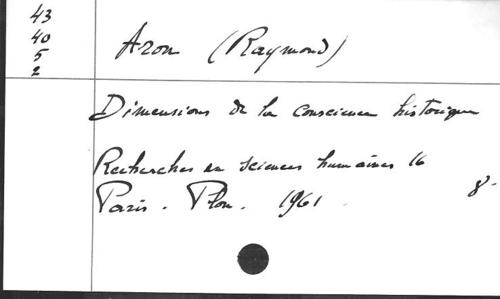 43
40
5
2
Aron (Raymond)
Dimensions de la conscience historique
Recherches en sciences humaines 16
Paris. Plon. 1961. 8-